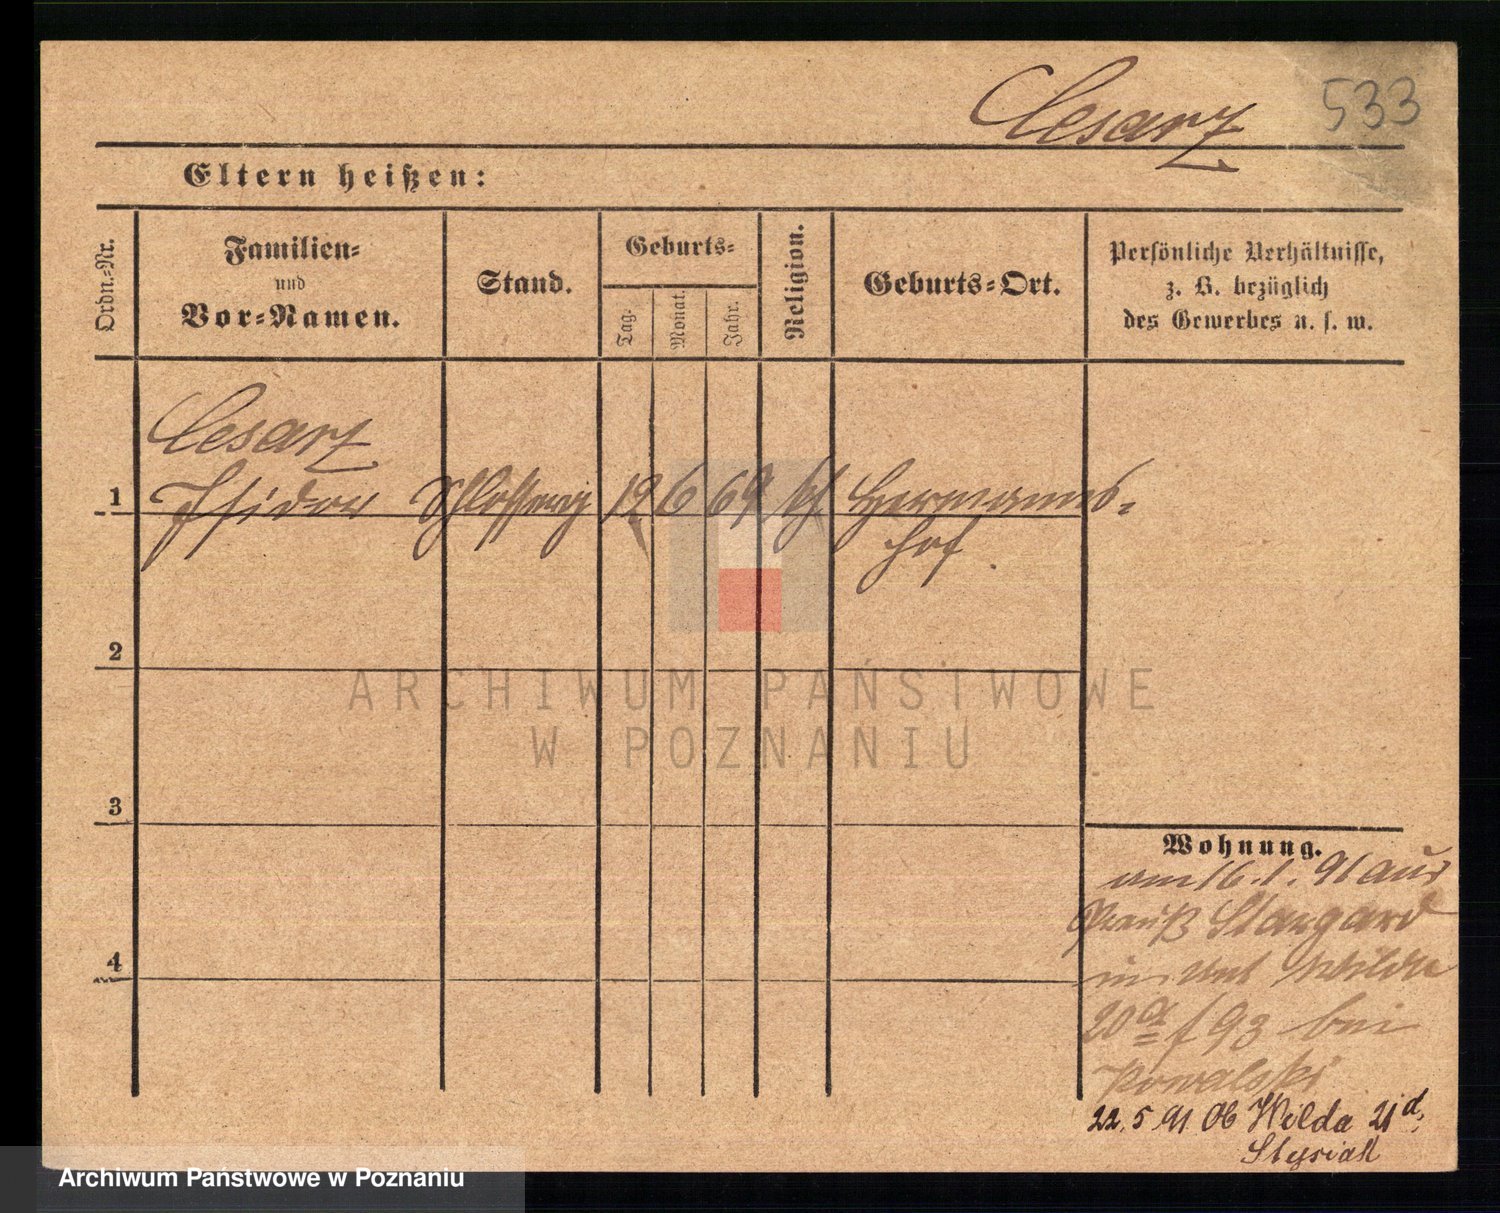 Cesarz 533
Eltern heißen:
Ordn.-Nr.
Familien-
und
Vor-Namen.
Stand.
Geburts-
Tag.
Monat.
Jahr.
Religion.
Geburts-Ort.
Persönliche Verhältnisse,
z. B. bezüglich
des Gewerbes u. s. w.
Cesarz
1 Isidor 12 6 69 kt. Hermanns-
hof.
2
3
4
Wohnung.
am 16.1.91 aus
Preuß Stargard
in Wilda
20 93 bei
Kowalski
22.5.91 Ob Wilda 21 d,
Stysiak
ARCHIWUM PAŃSTWOWE
W POZNANIU
Archiwum Państwowe w Poznaniu